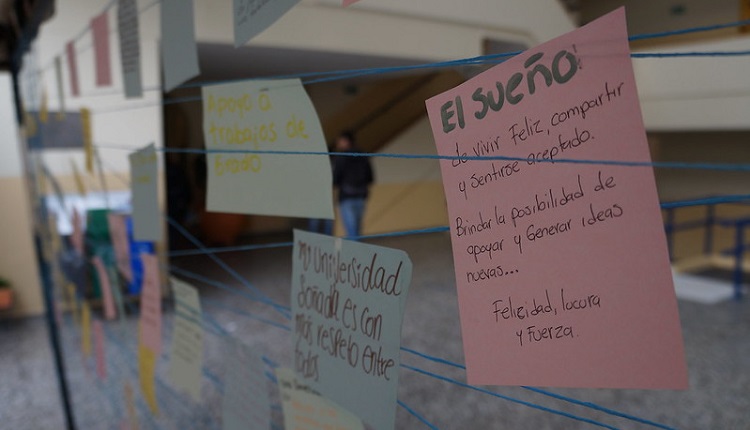 Apoyo a
trabajos de
Grado
Mi Universidad
Soñada es con
más respeto entre
todos
El sueño!
de vivir Feliz, compartir
y sentirse aceptado.
Brindar la posibilidad de
apoyar y Generar ideas
nuevas...
Felicidad, locura
y Fuerza